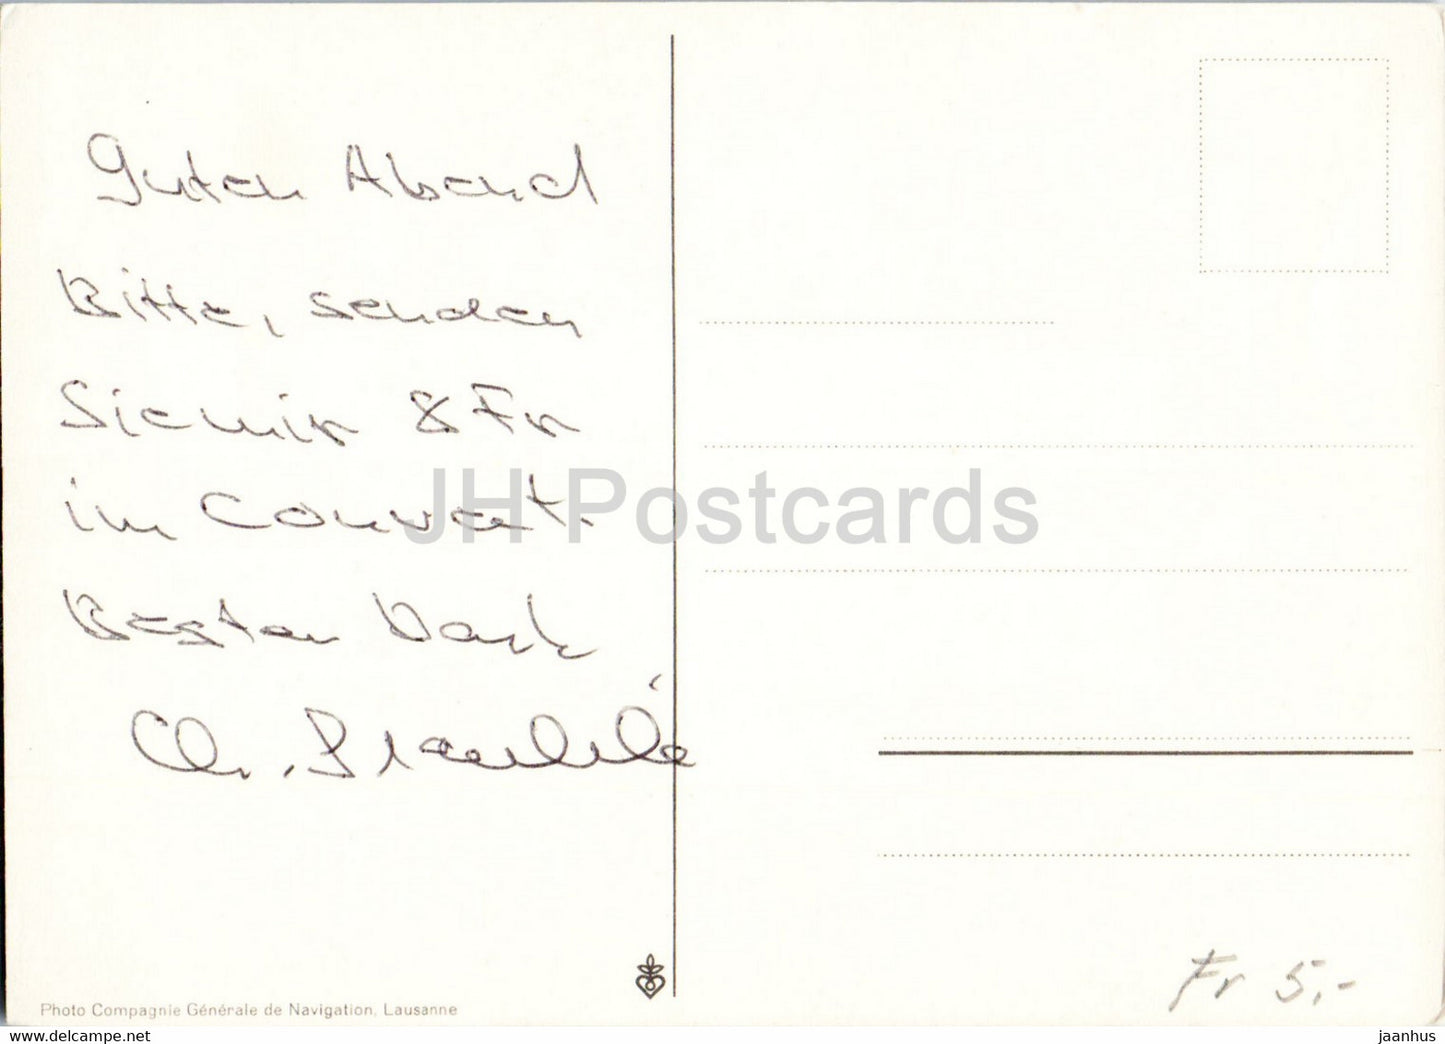 Guten Abend
Bitte, senden
Sie mir 8 Fr
im Couvert.
Besten Dank
Ch.
JH Postcards
Fr 5.-
Photo Compagnie Générale de Navigation, Lausanne
www.hippostcard.com
jaanhus